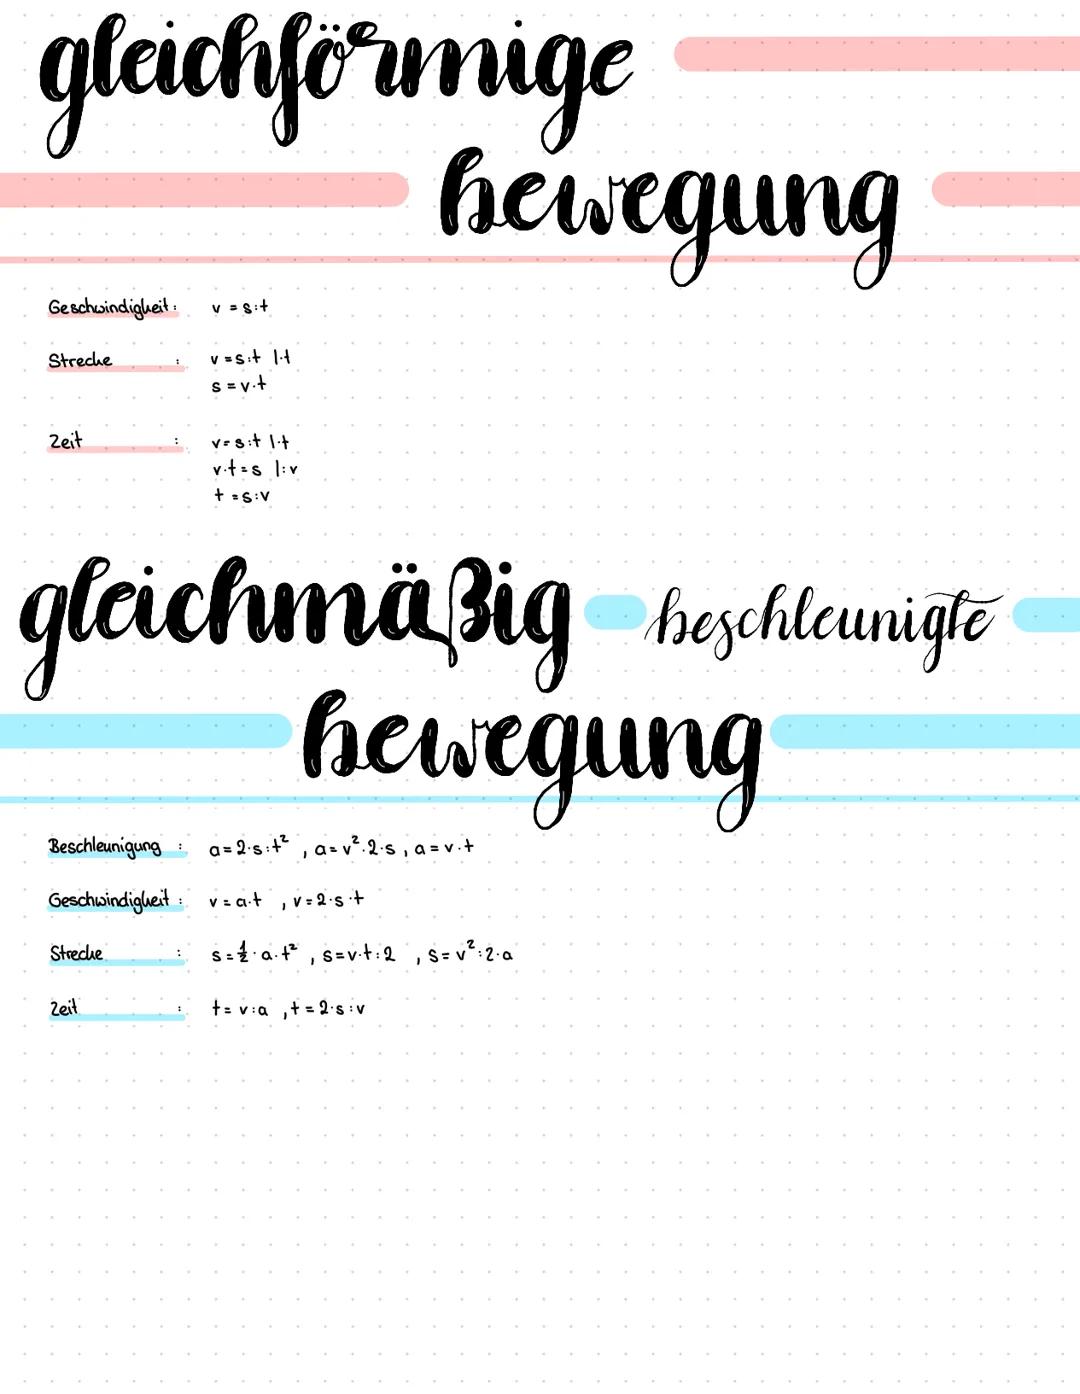 gleichförmige
bewegung
Geschwindigkeit: v = s:t
Strecke : v = s:t |·t
s = v·t
Zeit : v = s:t |·t
v·t = s |:v
t = s:v
gleichmäßig beschleunigte
bewegung
Beschleunigung : a = 2·s:t² , a = v²·2·s , a = v·t
Geschwindigkeit : v = a·t , v = 2·s·t
Strecke : s = ½·a·t² , s = v·t:2 , s = v²:2·a
Zeit : t = v:a , t = 2·s:v